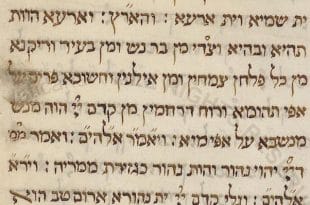 ית שמיא וית ארעא : והארץ : וארעא הוות
תהיא ובהיא וצדי מן בר נש ומן בעיר וריקנא
מן כל פלחן צמחין ומן אילנין וחשוכא פריס על
אפי תהומא ורוח דרחמין מן קדם ייי הוה מנש
מנשבא על אפי מיא : ויאמר אלהים : ואמר ממ
דייי יהוי נהור והות נהור כגזירת ממריה : וירא
אלהים : וגלי קדם ייי ית נהורא ארום טב הוא